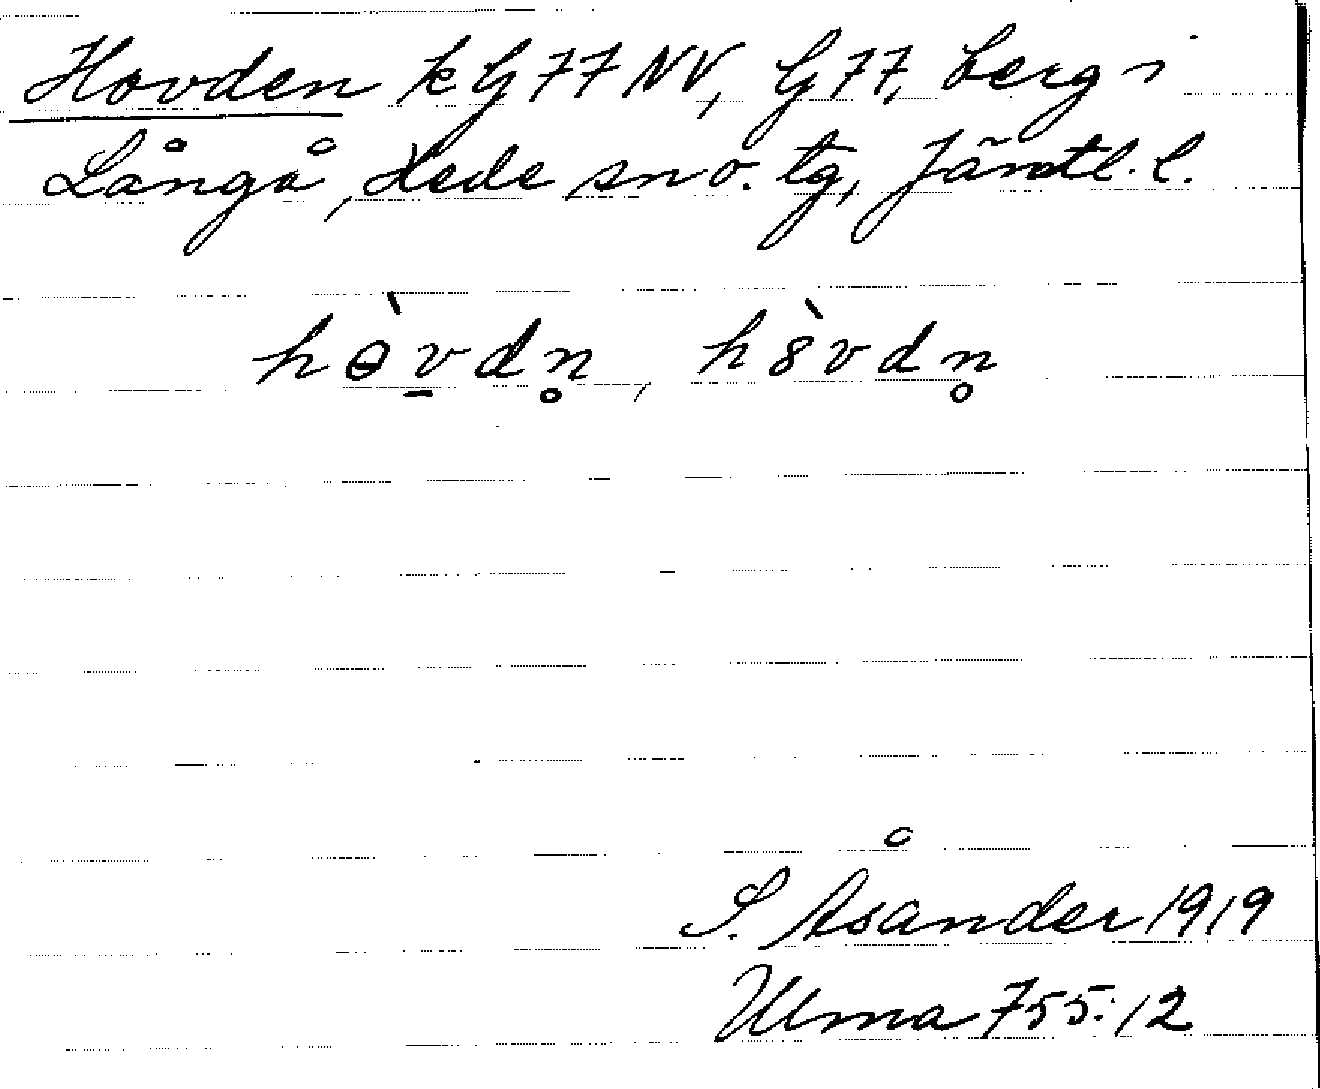 Hovden k G 77 NV, G 77, berg i
Långå, Hede sn o. tg, Jämtl. l.
hɵ̀v̲dn̥, h8̀vdn̥
S. Åsander 1919
Ulma 755:12